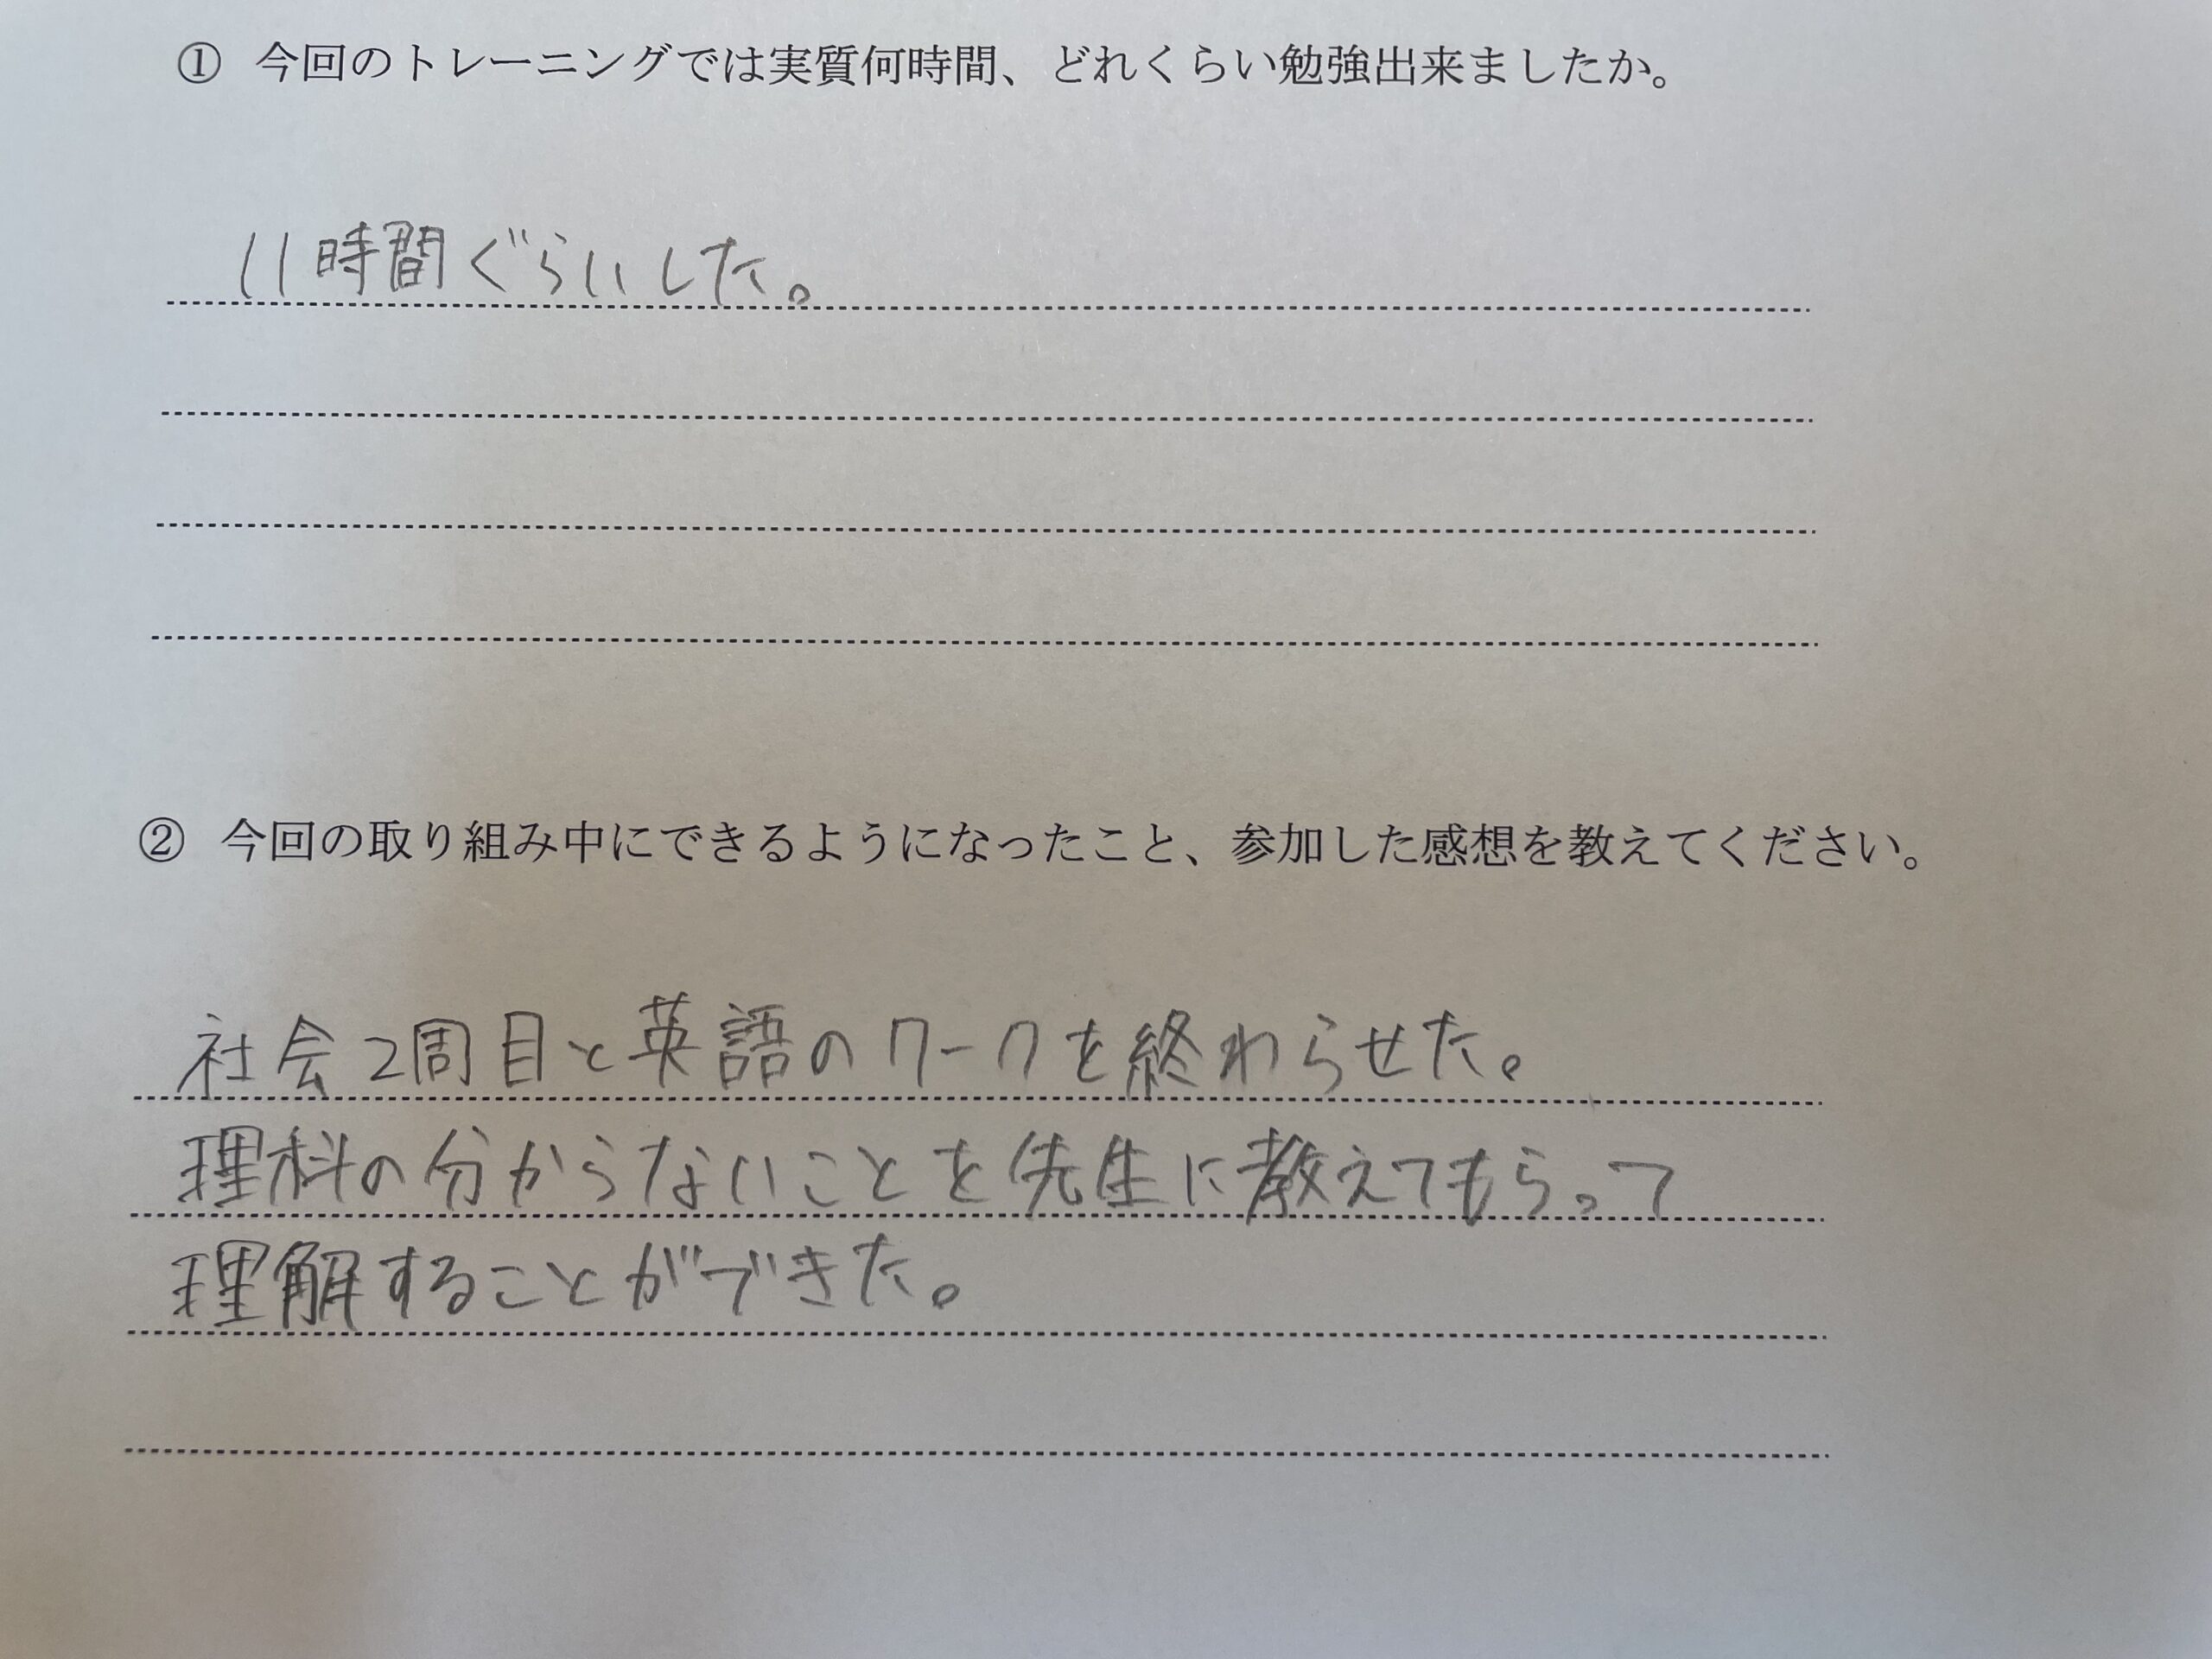 ① 今回のトレーニングでは実質何時間、どれくらい勉強出来ましたか。
11時間ぐらいした。
② 今回の取り組み中にできるようになったこと、参加した感想を教えてください。
社会2周目と英語のワークを終わらせた。
理科の分からないことを先生に教えてもらって
理解することができた。